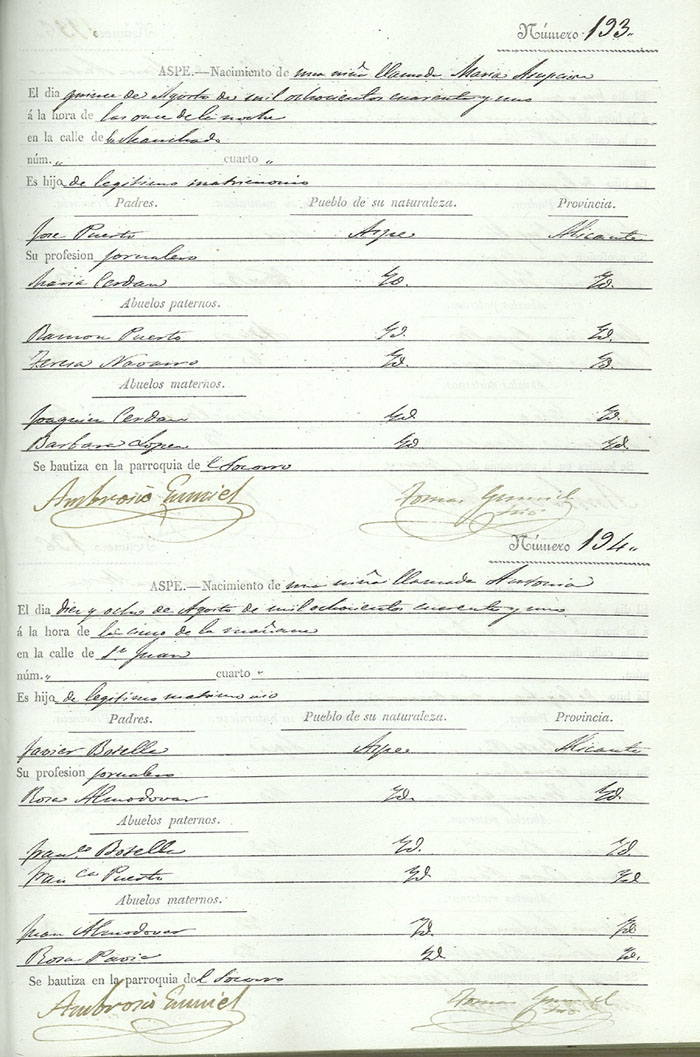 Número 193.
ASPE.—Nacimiento de una niña llamada Maria Asuncion
El dia quince de Agosto de mil ochocientos cuarenta y uno
á la hora de las once de la noche
en la calle de
núm. „ cuarto „
Es hijo de legitimo matrimonio
Padres. Pueblo de su naturaleza. Provincia.
Jose Puerto Aspe Alicante
Su profesion jornalero
Maria Cerdan Yd. Yd.
Abuelos paternos.
Ramon Puerto Yd. Yd.
Teresa Navarro Yd. Yd.
Abuelos maternos.
Joaquin Cerdan Yd. Yd.
Barbara Lopez Yd. Yd.
Se bautiza en la parroquia del Socorro
Ambrosio Gumiel Tomas Gumiel
Número 194.
ASPE.—Nacimiento de una niña llamada Antonia
El dia diez y ocho de Agosto de mil ochocientos cuarenta y uno
á la hora de las cinco de la mañana
en la calle de Sn. Juan
núm. „ cuarto „
Es hijo de legitimo matrimonio
Padres. Pueblo de su naturaleza. Provincia.
Javier Botella Aspe Alicante
Su profesion jornalero
Rosa Almodovar Yd. Yd.
Abuelos paternos.
Franco. Botella Yd. Yd.
Franca. Puerto Yd. Yd.
Abuelos maternos.
Juan Almodovar Yd. Yd.
Rosa Pavia Yd. Yd.
Se bautiza en la parroquia del Socorro
Ambrosio Gumiel Tomas Gumiel